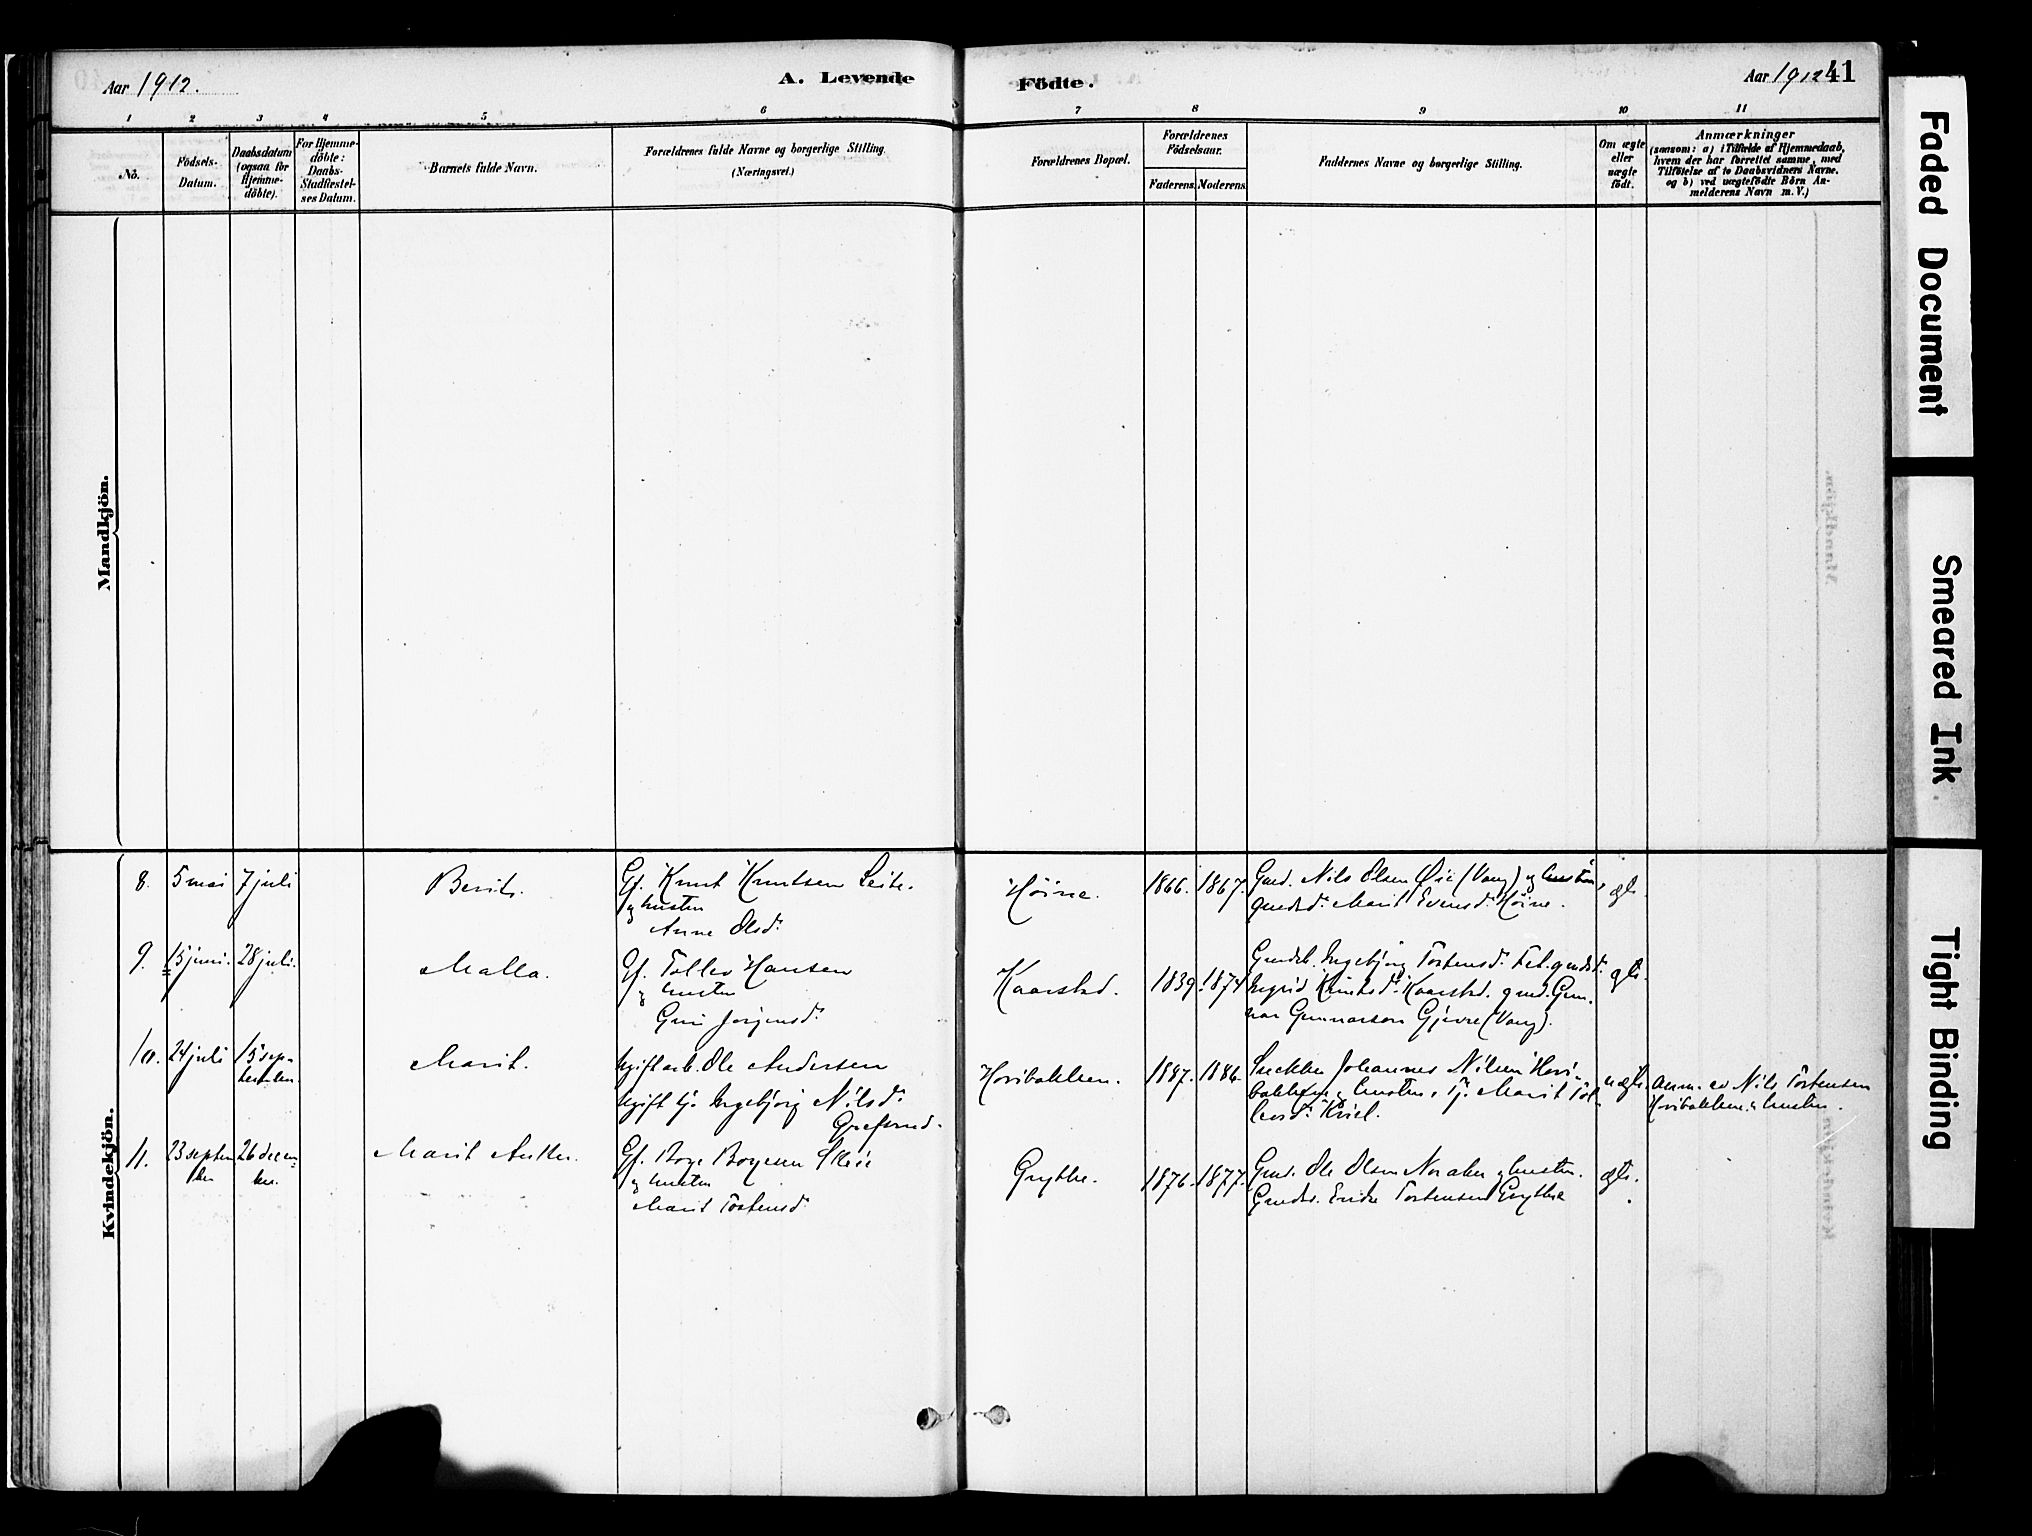 Aar 1912.
A. Levende
Födte.
Aar 1912
41
1 2 3 4 5 6 7 8 9 10 11
No.
Födsels-
Datum.
Daabsdatum
(ogsaa for
Hjemme-
döbte).
For Hjemme-
döbte:
Daabs-
Stadfæstel-
ses Datum.
Barnets fulde Navn.
Forældrenes fulde Navne og borgerlige Stilling.
(Næringsvei.)
Forældrenes Bopæl.
Forældrenes
Födselsaar.
Faderens.
Moderens.
Faddernes Navne og borgerlige Stilling.
Om ægte
eller
uægte
födt.
Anmærkninger
(saasom: a) i Tilfælde af Hjemmedaab,
hvem der har forrettet samme, med
Tilföielse af to Daabsvidners Navne.
og b) ved uægtefödte Börn An-
melderens Navn m. V.)
Mandkjön.
Kvindekjön.
8.
5 mai
7 juli
Berit.
Gf. Knut Knutsen Leite.
og hustru
Anne Olsd.
Höine.
1866.
1867.
Gmd. Nils Olsen Öie (Vang) og hustru,
gmdsd. Marit Evensd. Höine.
ægte.
9.
15 juni.
28 juli.
Malla.
Gf. Tollev Hansen
og hustru
Guri Jørgensd.
Kaarstad.
1839.
1874
Ingebjørg Torstensd.
Ingrid Knutsd. Kaarstad. gmd. Gun-
nar Gunnarson Gjevre (Vang).
ægte.
10.
24 juli
15 sep-
tember.
Marit.
Ugift arb. Ole Andersen
Ugift tj. Ingebjørg Nilsd.
Hovibakken.
1887.
1886.
Snekker Johannes Nilsen Hovi-
bakken, hustru, tj. Marit Tol-
levsd.
uægte.
Anm. av Nils Torstensen
Hovibakken, hustru.
11.
23 septem
ber
26 decem-
ber.
Marit
Gf. Boye Boyesen
og hustru
Marit Torstensd.
Grythe.
1876.
1877.
Gmd. Ole Olsen hustru.
Torstensen Grythe
ægte.
Faded Document
Smeared Ink
Tight Binding